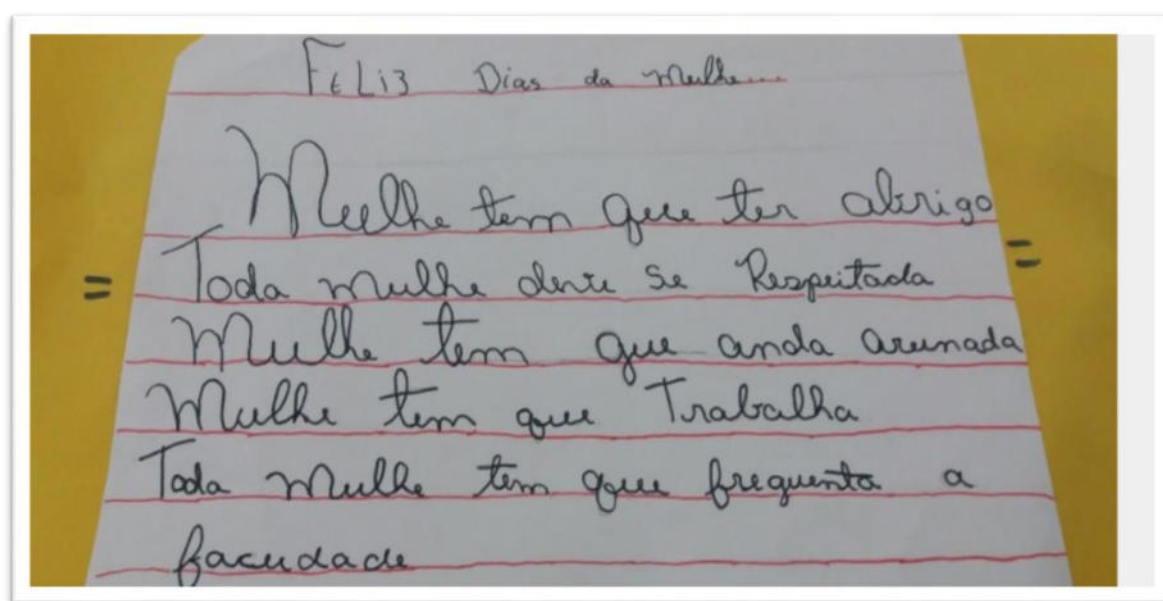 FELiz Dias da Mulhe...
Mulhe tem que ter abrigo
Toda mulhe deve se Respeitada
Mulhe tem que anda arumada
Mulhe tem que Trabalha
Toda Mulhe tem que frequenta a
facudade